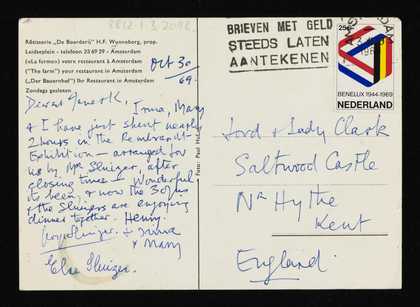 Rôtisserie „De Boerderij" H.F. Wunneberg, prop.
Leidseplein - telefoon 23 69 29 - Amsterdam
(«La ferme») votre restaurant à Amsterdam
("The farm") your restaurant in Amsterdam
(„Der Bauernhof") Ihr Restaurant in Amsterdam
Zondags gesloten.
Oct 30
69.
Dearest Jane & K,
Irma, Mary
& I have just spent nearly
2 hours in the Rembrandt
Exhibition — arranged for
us by Mr Sluizer, after
closing time — Wonderful
its been, & now the
& the Sluizers are enjoying
dinner together. Henry.
Sluizer & Irma
& Mary
Else Sluizer.
Foto: Paul
BRIEVEN MET GELD
STEEDS LATEN
AANTEKENEN
25c
BENELUX 1944-1969
NEDERLAND
Lord & Lady Clark
Saltwood Castle
Nr Hythe
Kent
England.